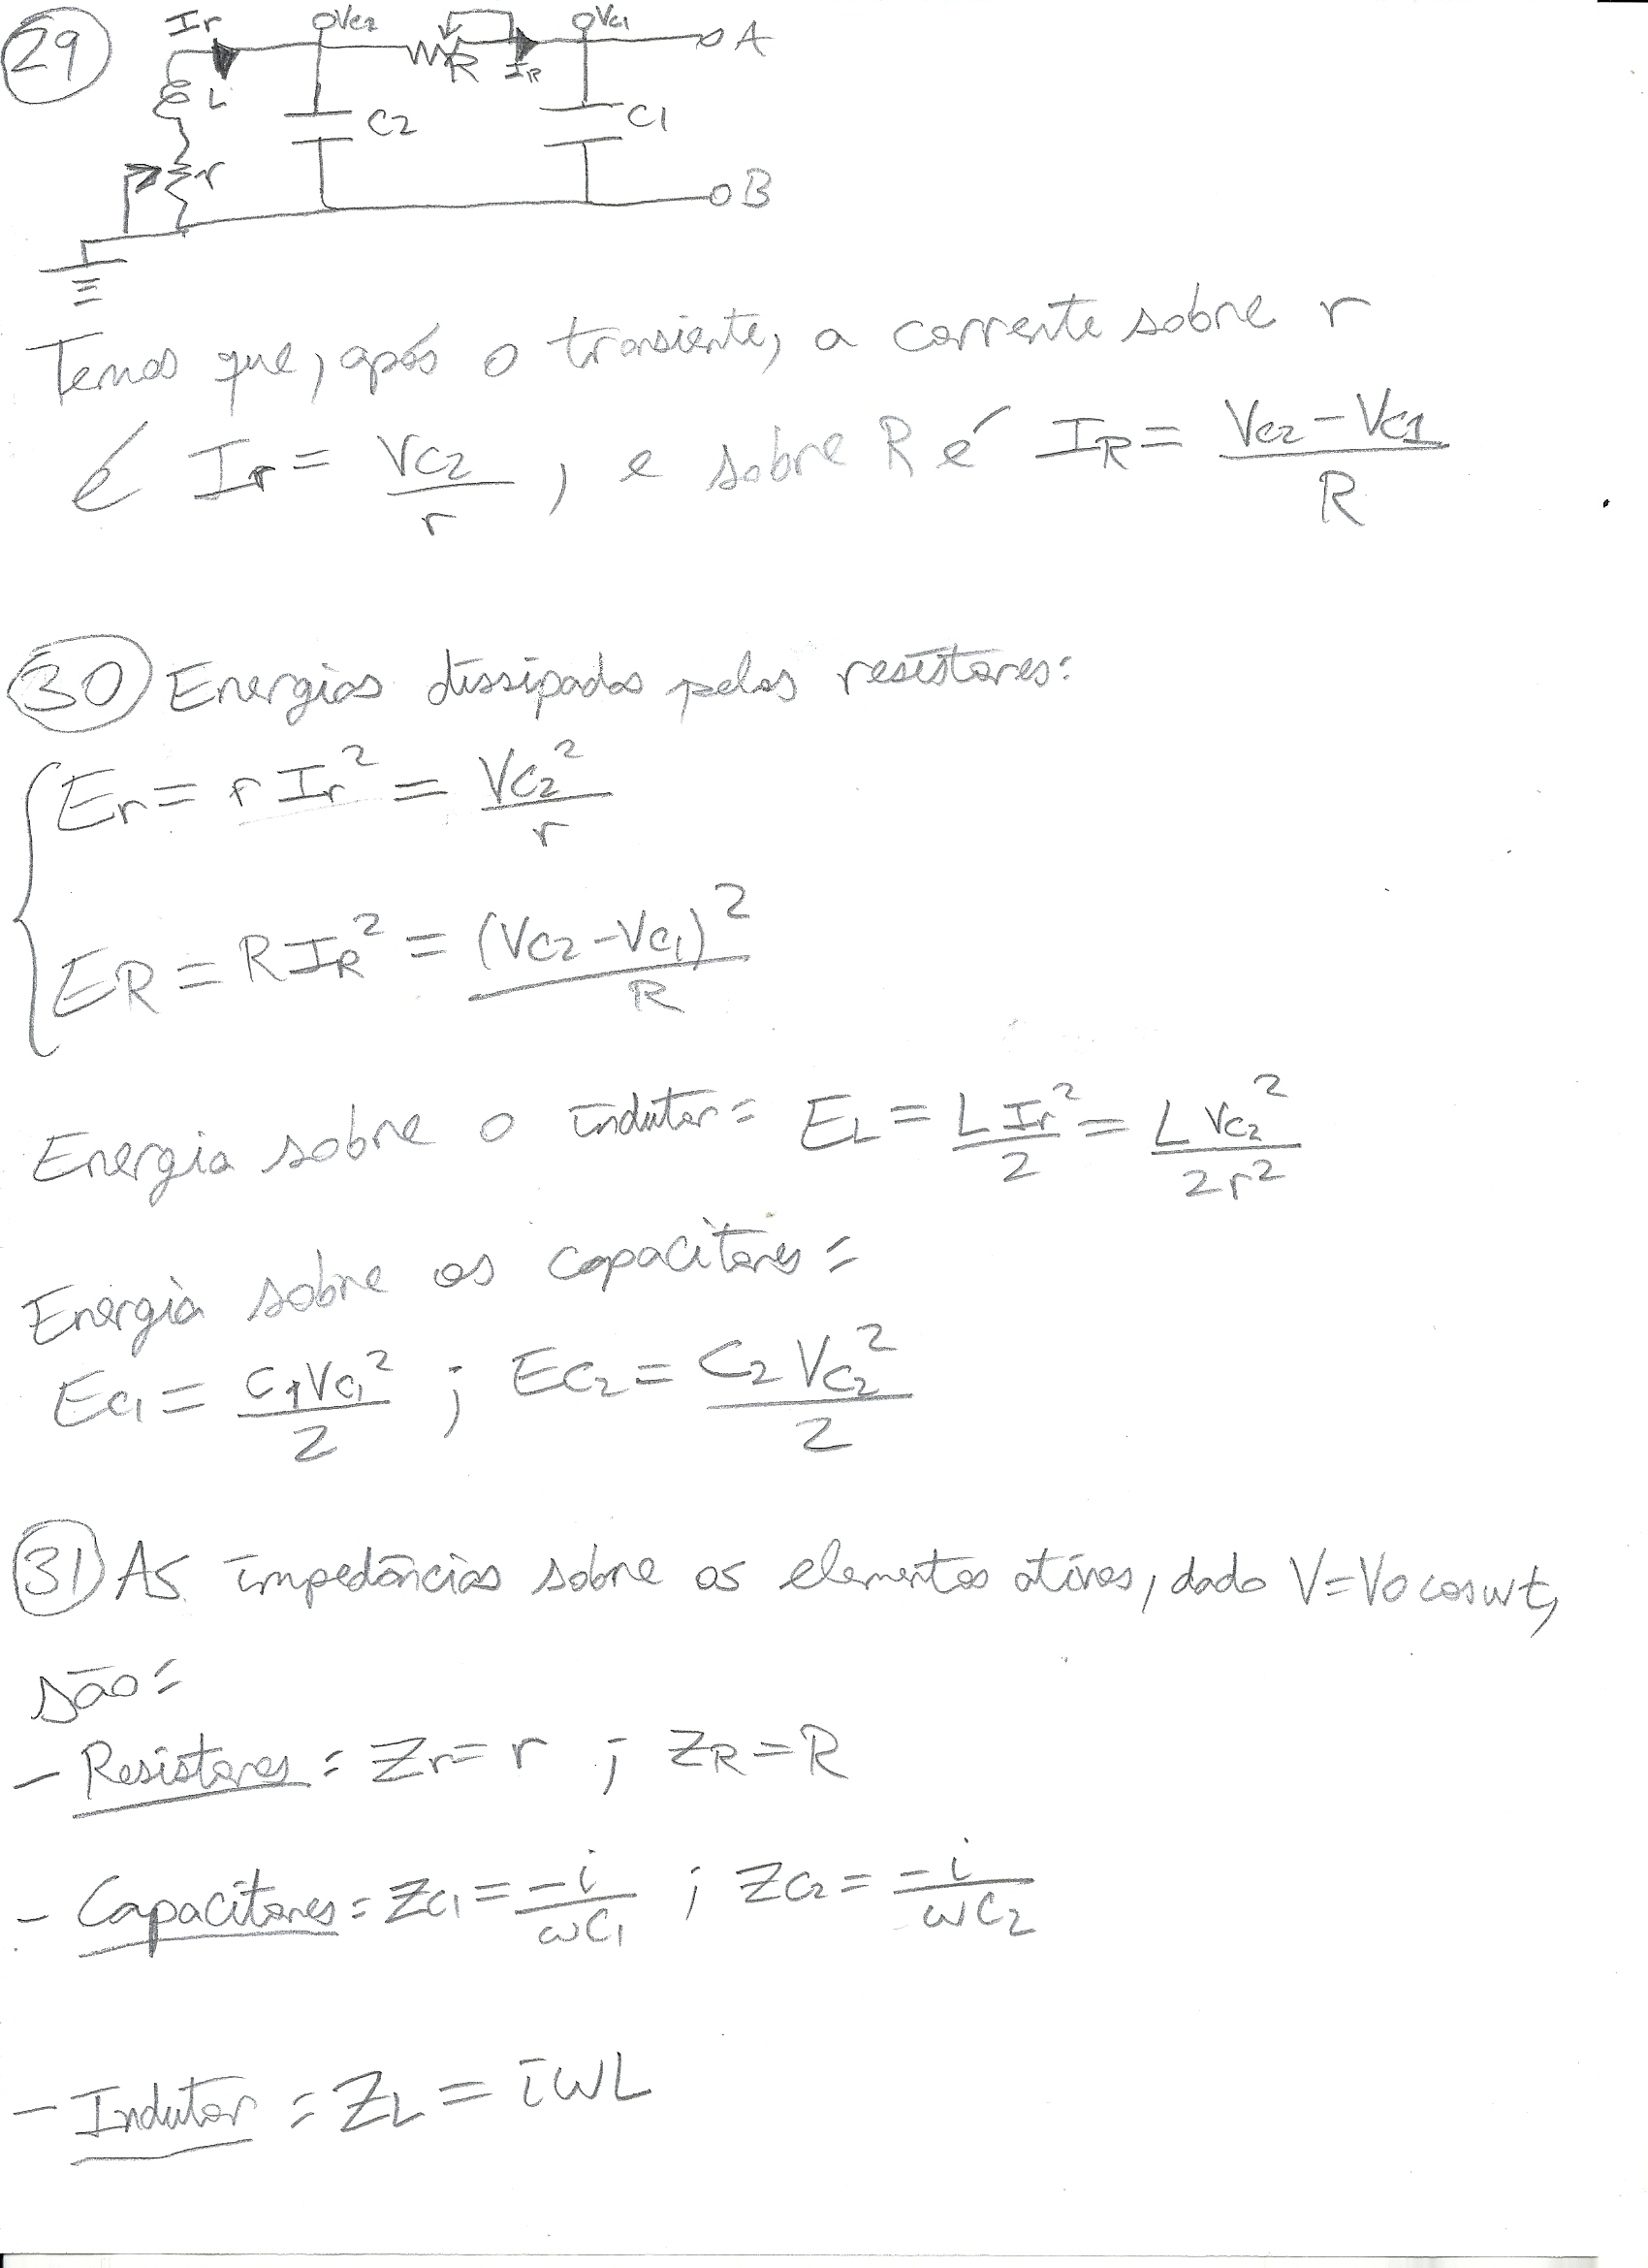 29
Ir
VC2
VC1
A
L
R
IR
C2
C1
r
B
Temos que, após o transiente, a corrente sobre r
é Ir = VC2/r , e sobre R é IR = (VC2 - VC1)/R
30 Energias dissipadas pelos resistores:
Er = r Ir² = VC2²/r
ER = R IR² = (VC2 - VC1)²/R
Energia sobre o indutor: EL = L Ir²/2 = L VC2²/2r²
Energia sobre os capacitores:
EC1 = C1 VC1²/2 ; EC2 = C2 VC2²/2
31 As impedâncias sobre os elementos ativos, dado V = V0 cos wt,
são:
- Resistores: Zr = r ; ZR = R
- Capacitores: ZC1 = -i/ωC1 ; ZC2 = -i/ωC2
- Indutor: ZL = iωL